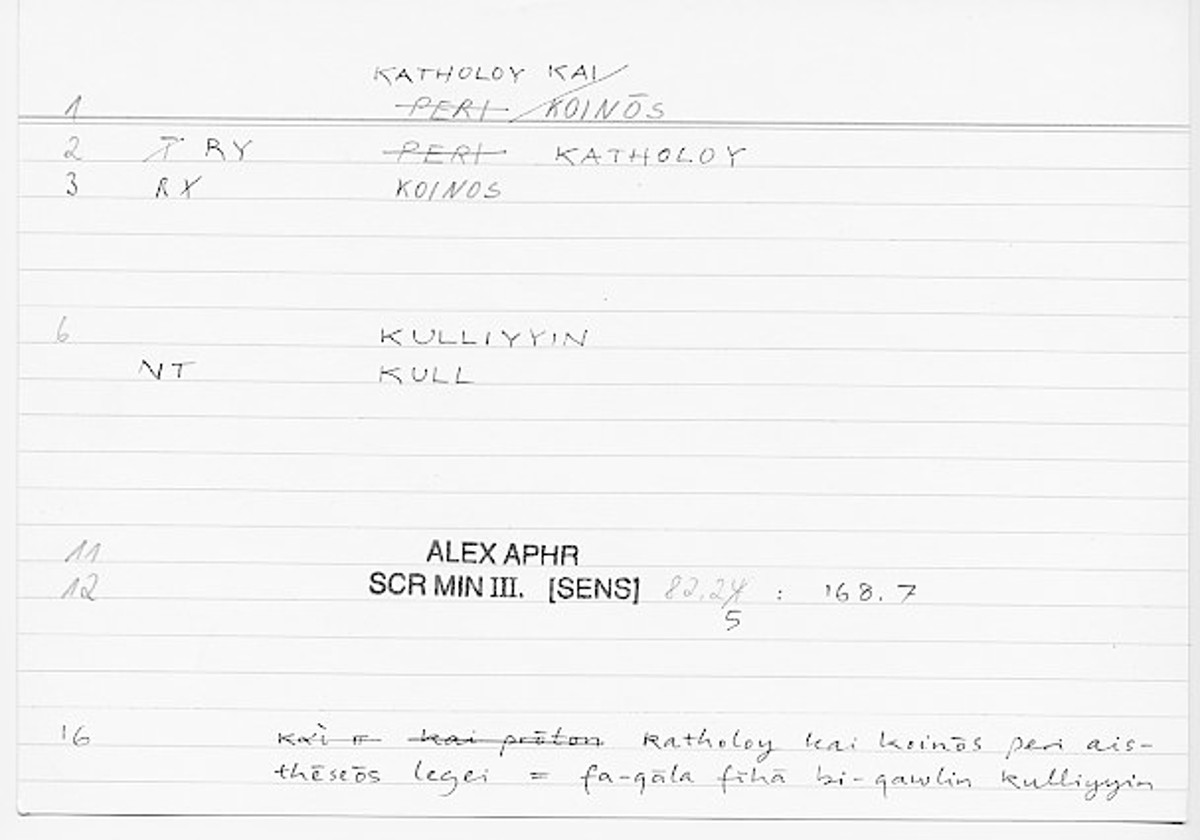 KATHOLOY KAI
1 PERI KOINŌS
2 T RY PERI KATHOLOY
3 RX KOINOS
6 KULLIYYIN
NT KULL
11 ALEX APHR
12 SCR MIN III. [SENS] 82.24 : 168.7
5
16 καὶ π kai prōton katholoy kai koinōs peri ais-
thēseōs legei = fa-qāla fīhā bi-qawlin kulliyyin